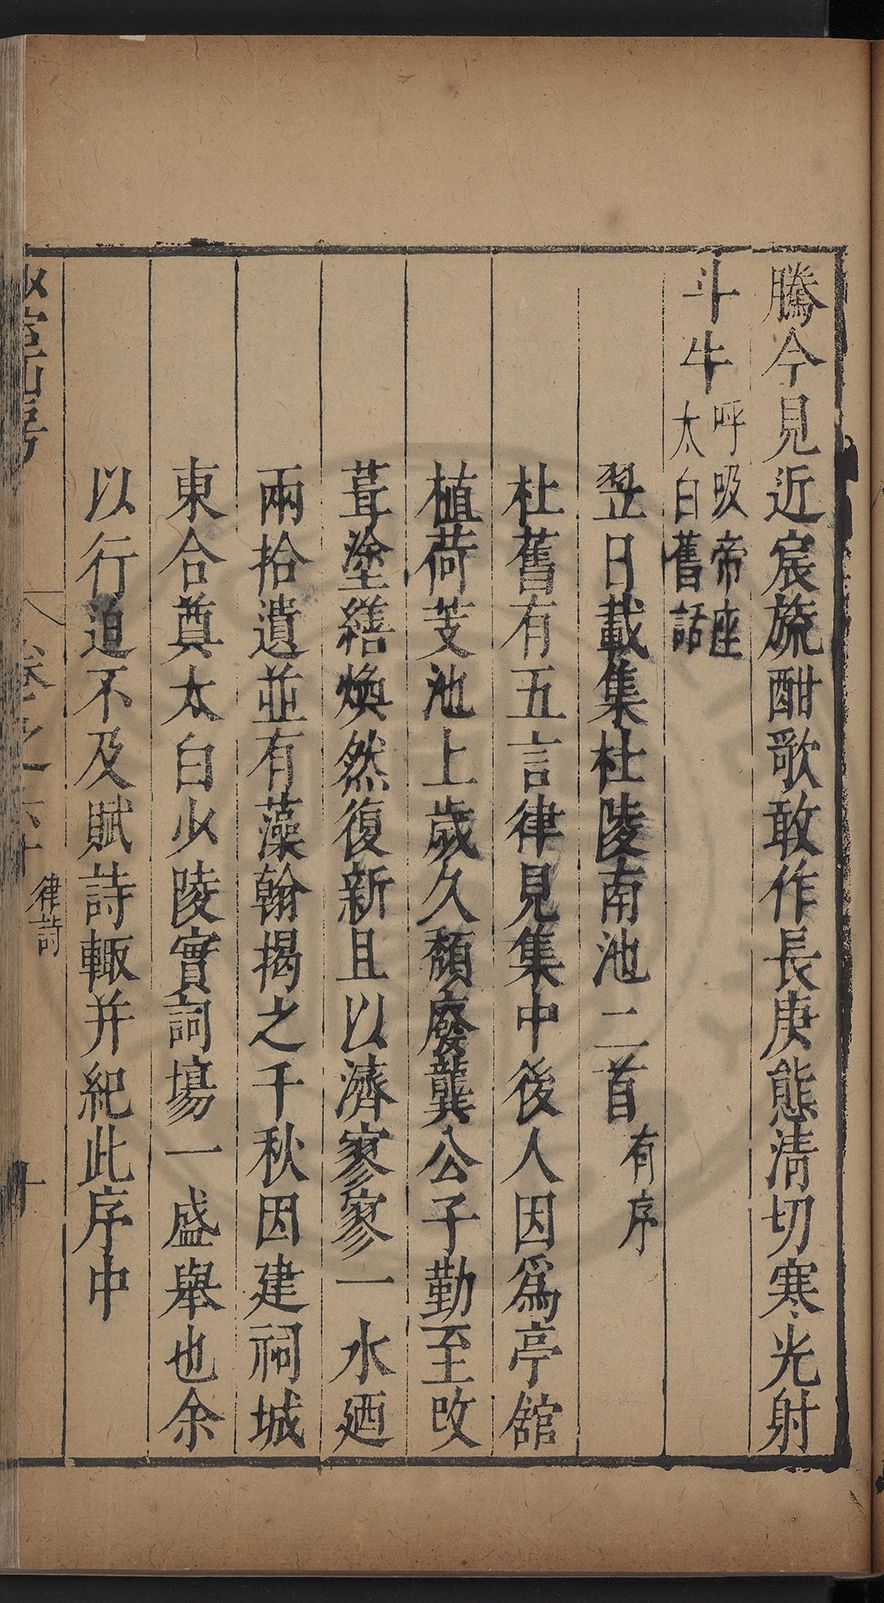 騰今見近宸旒酣歌敢作長庚態清切寒光射
斗牛呼吸帝座太白舊話
翌日載集杜陵南池二首有序
杜舊有五言律見集中後人因爲亭舘
植荷芰池上歲久頽廢龔公子勤至改
葺塗繕煥然復新且以濟寥寥一水廼
兩拾遺並有藻翰揭之千秋因建祠城
東合奠太白少陵實詞塲一盛舉也余
以行迫不及賦詩輙并紀此序中
卷之六十
律詩
十